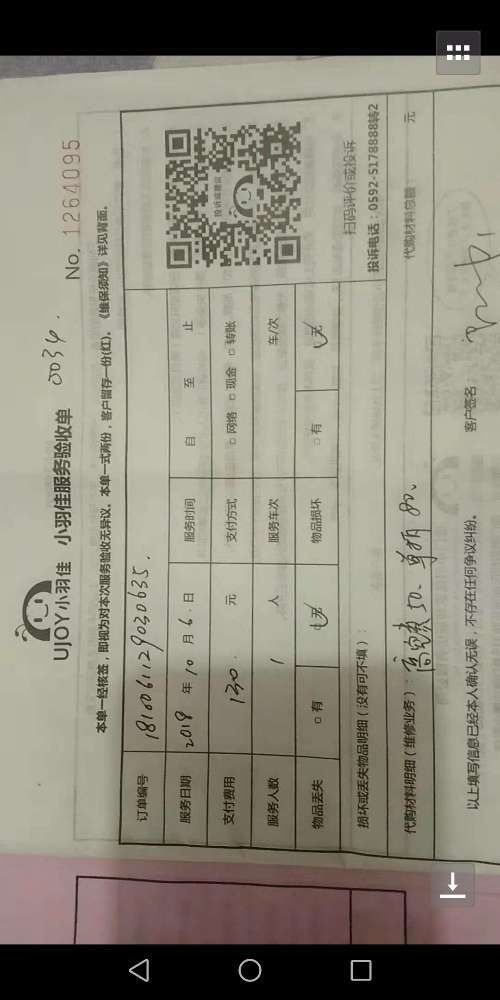 UJOY小羽佳 小羽佳服务验收单 0034.
No. 1264095
本单一经核签，即视为对本次服务验收无异议。本单一式两份，客户留存一份(红)。《维保须知》详见背面。
订单编号 1810061129030635.
服务日期 2018 年 10 月 6 日 服务时间 自 至 止
支付费用 130. 元 支付方式 □ 网络 □ 现金 □ 转账
服务人数 1 人 服务车次 车/次
物品丢失 □ 有 无 物品损坏 □ 有 无
投诉或建议
扫码评价或投诉
投诉电话：0592-5178888转2
损坏或丢失物品明细（没有可不填）：
代购材料明细（维修业务）： 50. 80. 代购材料总额： 元
以上填写信息已经本人确认无误，不存在任何争议纠纷。 客户签名